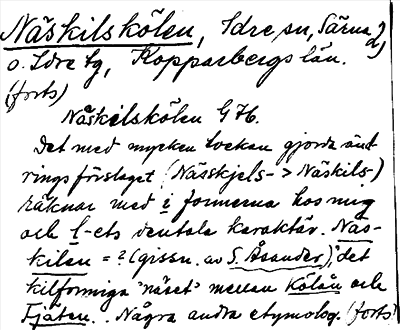 Näskilskölen, Idre sn, Särna 2)
o. Idre tg, Kopparbergs län.
(forts)
Näskilskölen GK.
Det med mycken tvekan gjorda änd-
ringsförslaget (Nässkjels- > Näskils-)
räknar med i formerna hos mig
och l-ets dentala karaktär. Näs-
kilen = ? (gissn. av S. Åsander), "det
kilformiga 'näset' mellan Kölån och
Fjäten. Några andra etymolog. (forts)